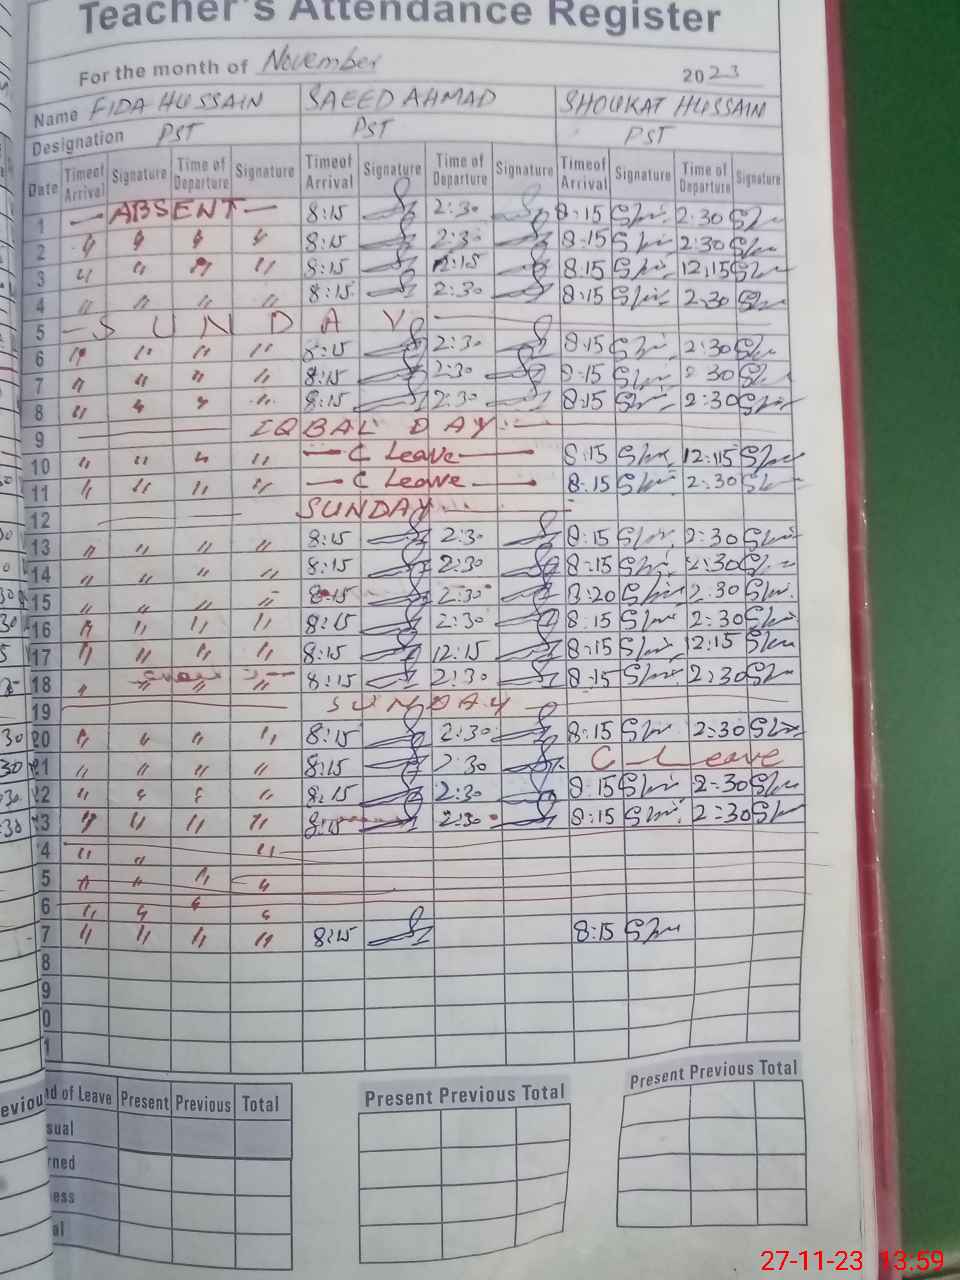 Teacher's Attendance Register
For the month of November 2023
Name FIDA HUSSAIN SAEED AHMAD SHOUKAT HUSSAIN
Designation PST PST PST
Date Timeof Arrival Signature Time of Departure Signature Timeof Arrival Signature Time of Departure Signature Timeof Arrival Signature Time of Departure Signature
1 — ABSENT — 8:15 2:30 8:15 2:30
2 〃 〃 〃 〃 8:15 2:30 8:15 2:30
3 〃 〃 〃 〃 8:15 12:15 8:15 12:15
4 〃 〃 〃 〃 8:15 2:30 8:15 2:30
5 — SUNDAY
6 〃 〃 〃 〃 8:15 2:30 8:15 2:30
7 〃 〃 〃 〃 8:15 2:30 8:15 2:30
8 〃 〃 〃 〃 8:15 2:30 8:15 2:30
9 IQBAL DAY
10 〃 〃 〃 〃 — C Leave — 8:15 12:15
11 〃 〃 〃 〃 — C Leave — 8:15 2:30
12 SUNDAY
13 〃 〃 〃 〃 8:15 2:30 8:15 2:30
14 〃 〃 〃 〃 8:15 2:30 8:15 2:30
15 〃 〃 〃 〃 8:15 2:30 8:20 2:30
16 〃 〃 〃 〃 8:15 2:30 8:15 2:30
17 〃 〃 〃 〃 8:15 12:15 8:15 12:15
18 〃 〃 〃 〃 8:15 2:30 8:15 2:30
19 SUNDAY
20 〃 〃 〃 〃 8:15 2:30 8:15 2:30
21 〃 〃 〃 〃 8:15 2:30 C Leave
22 〃 〃 〃 〃 8:15 2:30 8:15 2:30
23 〃 〃 〃 〃 8:15 2:30 8:15 2:30
4 〃 〃 〃
5 〃 〃 〃 〃
6 〃 〃 〃 〃
7 〃 〃 〃 〃 8:15 8:15
8
9
0
1
nd of Leave Present Previous Total Present Previous Total Present Previous Total
sual
rned
ness
al
27-11-23 13:59